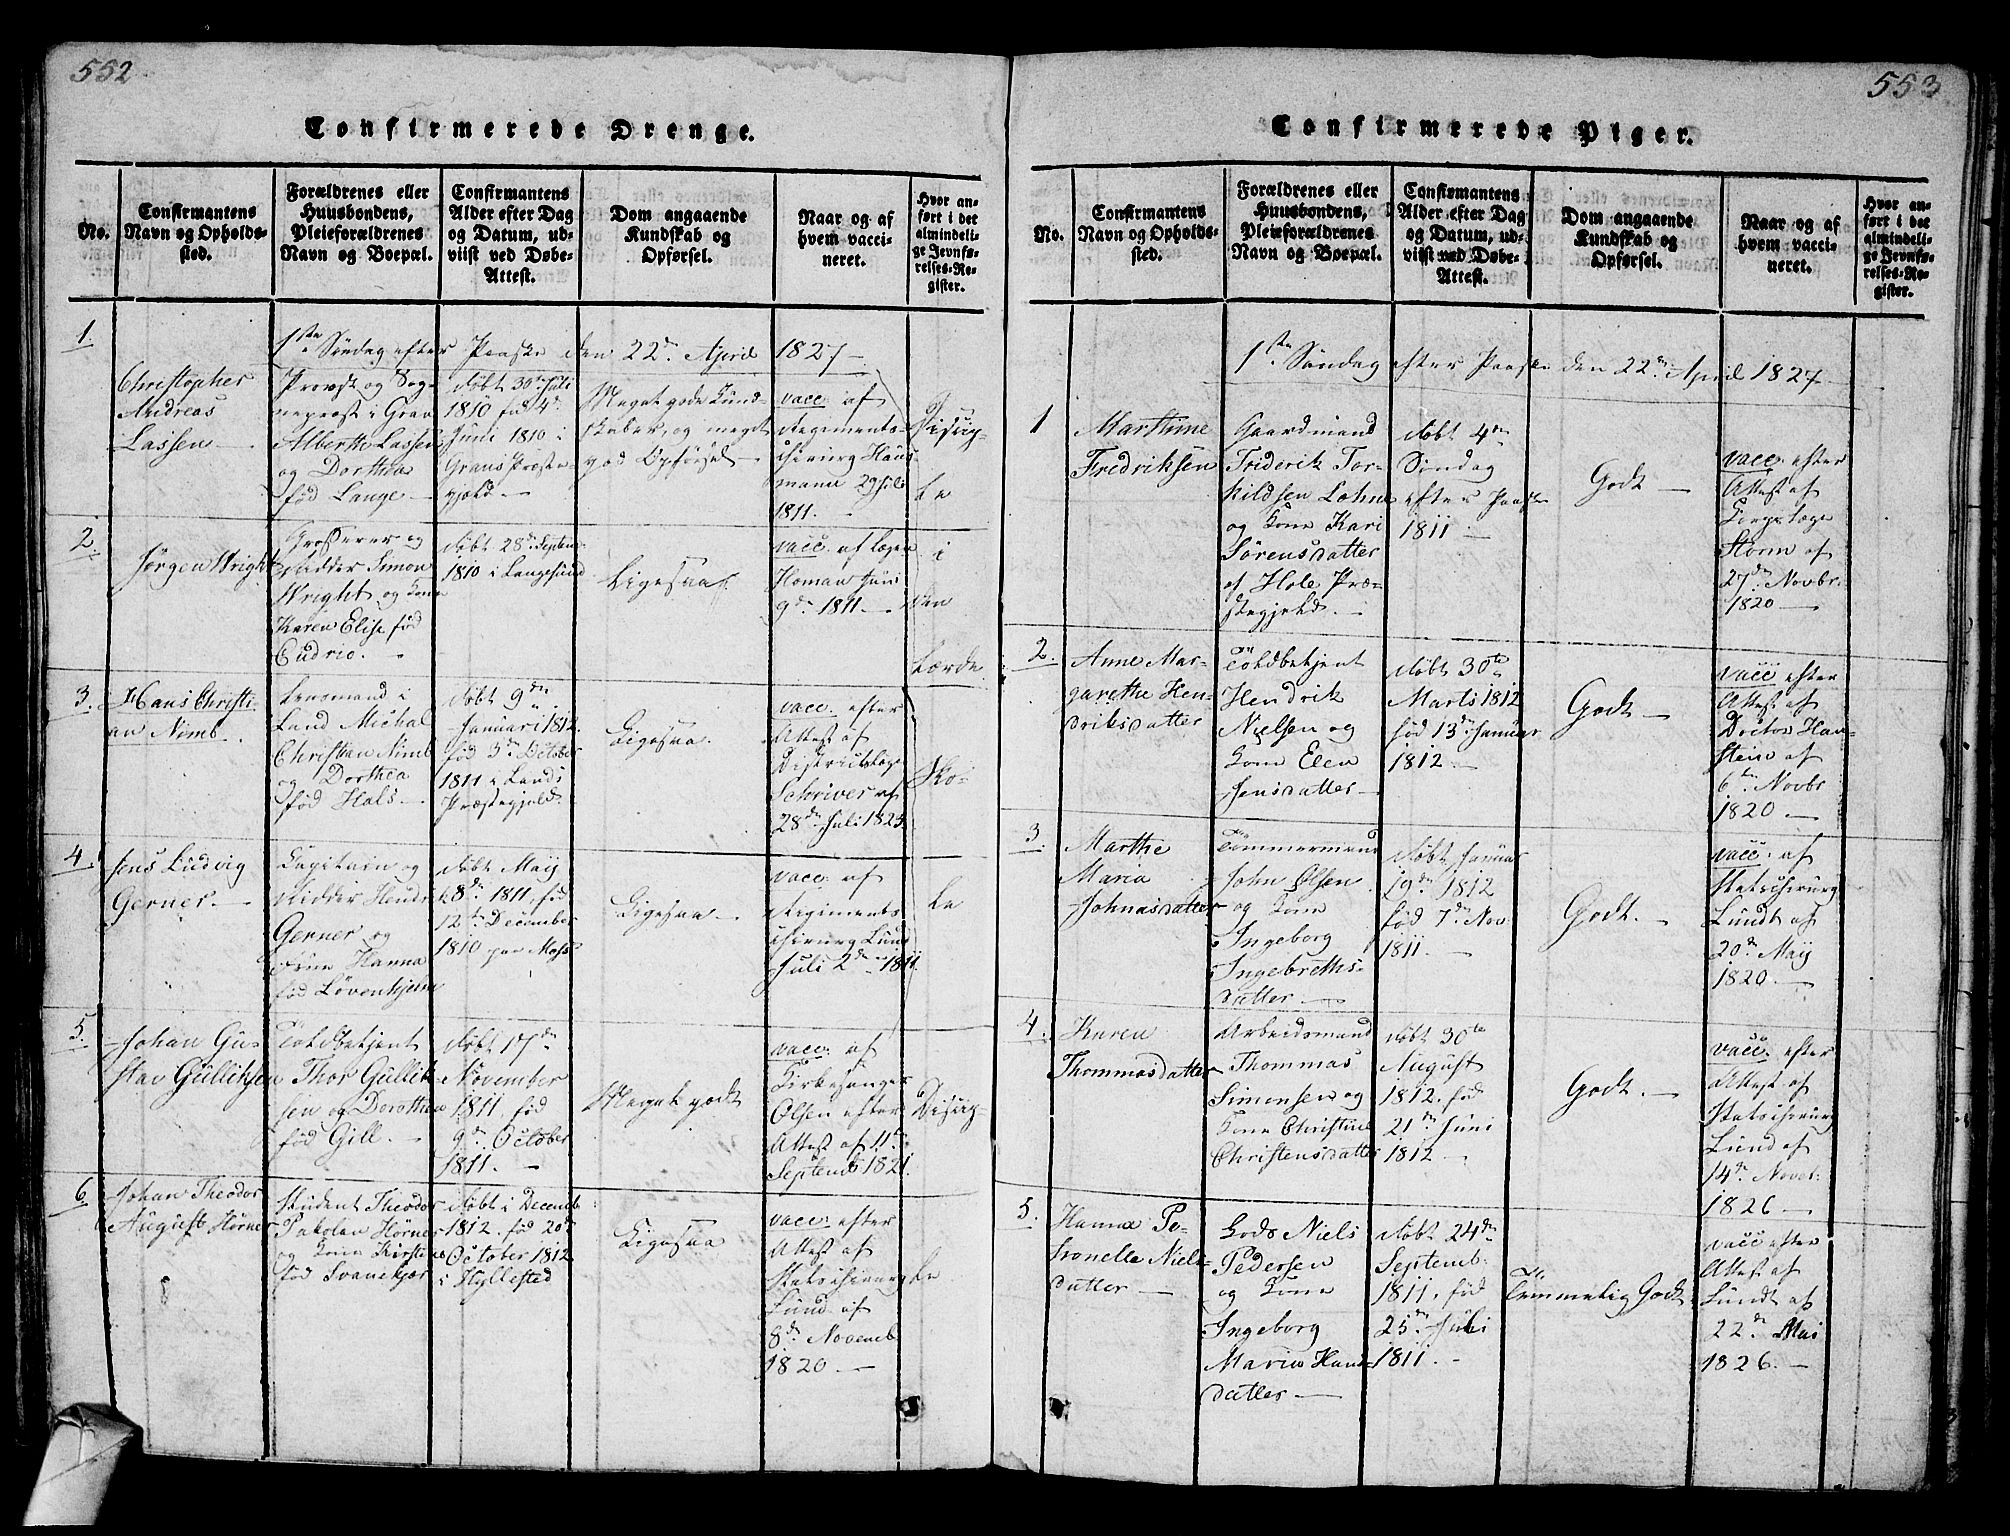 552
Confirmerede Drenge.
No.
Confirmantens
Navn og Opholds-
sted.
Forældrenes eller
Huusbondens,
Pleieforældrenes
Navn og Boepæl.
Confirmantens
Alder efter Dag
og Datum, ud-
viist ved Døbe-
Attest.
Dom angaaende
Kundskab og
Opførsel.
Naar og af
hvem vacci-
neret.
Hvor an-
ført i det
almindeli-
ge Jevnfø-
relses-Re-
gister.
1ste Söndag efter Paaske den 22de April 1827 —
1
Christopher
Andreas
Lassen
Provst og Sog-
nepræst i Gran
Alberth Lassen
og Dorthea
fød Lange —
døbt 30te Juli
1810 fød 4de
Juni 1810 i
Grans Præste-
gjeld —
Meget gode Kund-
skaber, og meget
god Opførsel
vacc: af
Regiments
chirurg Haus-
mann 29 Juli
1811. —
Discip-
le
i
den
lærde
Sko-
le
2.
Jørgen Wright
Grosserer og
Ridder Simon
Wright og Kone
Karen Elise fød
Cudrio. —
døbt 28de Septem
1810 i Langesund
Ligesaa
vacc: af Lægen
Homan Juni
9de 1811 —
3.
Hans Christi-
an Nimb
Lensmand i
Land Michal
Christian Nimb
og Dorthea
fød Hals —
døbt 9de
Januari 1812
fød 3de October
1811 i Lands
Præstegjeld
Ligesaa.
vacc: efter
Attest af
Districtslæge
Schriver af
28de Juli 1823
4.
Jens Ludvig
Gerner. —
Capitain og
Ridder Hendr
Gerner og
Kone Hanna
fød Løvenhjelm
døbt Maij
8de 1811, fød
12te December
1810 paa Moss
Ligesaa —
vacc: af
Regiments
chirurg Lund
Juli 2de 1811
5.
Johan Gu-
stav Gulliksen
Toldbetjent
Thor Gullik
sen og Dorothea
fød Gill. —
døbt 17de
November
1811 fød
9de October
1811. —
Meget godt
vacc: af
Kirkesanger
Olsen efter
Attest af 11te
Septemb 1821.
Discip-
le
6
Johan Theodor
August Hörner
Student Theodor
Jakolan Hörner
og Kone Kirstine
fød Svanekjær
døbt i Decemb
1812. fød 20de
October 1812
i Hyllested
Ligesaa
vacc: efter
Attest af
Statschirurg
Lund af
8de Novemb
1820 —
553
Confirmerede Piger.
No.
Confirmantens
Navn og Opholds-
sted.
Forældrenes eller
Huusbondens,
Pleieforældrenes
Navn og Boepæl.
Confirmantens
Alder efter Dag
og Datum, ud-
viist ved Døbe-
Attest.
Dom angaaende
Kundskab og
Opførsel.
Naar og af
hvem vacci-
neret.
Hvor an-
ført i det
almindeli-
ge Jevnfø-
relses-Re-
gister.
1ste Söndag efter Paaske den 22de April 1827 —
1
Marthine
Fredriksen
Gaardmand
Friderik Tor-
kildsen Lohne
og Kone Kari
Sörensdatter
af Hole Præ-
stegjeld. —
døbt 4de
Søndag
efter Paaske
1811 —
Godt —
vacc: efter
Attest af
Corpslæge
Storm af
27de Novbr.
1820 —
2.
Anne Mar-
garethe Hen-
driksdatter
Toldbetjent
Hendrik
Nielsen og
Kone Elen
Jensdatter —
døbt 30te
Marts 1812
fød 13de Januar
1812 —
Godt —
vacc efter
Attest af
Doctor Han-
stein af
6te Novbr
1820 —
3.
Marthe
Maria
Johnasdatter
Tömmermand
John Olsen
og Kone
Ingeborg
Ingebreths-
datter —
døbt Januar
19de 1812
fød 7de Nov
1811 —
Godt. —
vacc: af
Statschirurg
Lundt af
20de Maij
1820. —
4.
Karen
Thommasdatter
Arbeidsmand
Thommas
Simensen og
Kone Christine
Christensdatter
døbt 30te
August
1812. fød
21de Juni
1812 —
Godt. —
vacc: efter
Attest af
Statschirurg
Lund af
14de Novbr:
1826 —
5.
Hanna Pe-
tronelle Niels-
datter —
Lods Niels
Pedersen
og Kone
Ingeborg
Maria Hans-
datter —
døbt 24de
Septemb:
1811, fød
25de Juli
1811. —
Temmelig Godt
vacc efter
Attest af
Lundt af
22de Mai
1826. —